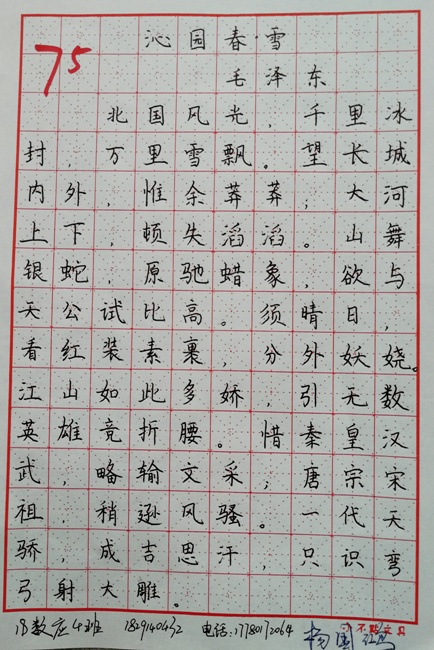 75
沁园春·雪
毛泽东
北国风光，千里冰
封，万里雪飘。望长城
内外，惟余莽莽；大河
上下，顿失滔滔。山舞
银蛇，原驰蜡象，欲与
天公试比高。须晴日，
看红装素裹，分外妖娆。
江山如此多娇，引无数
英雄竞折腰。惜秦皇汉
武，略输文采；唐宗宋
祖，稍逊风骚。一代天
骄，成吉思汗，只识弯
弓射大雕。
18数应4班 电话:17780172064